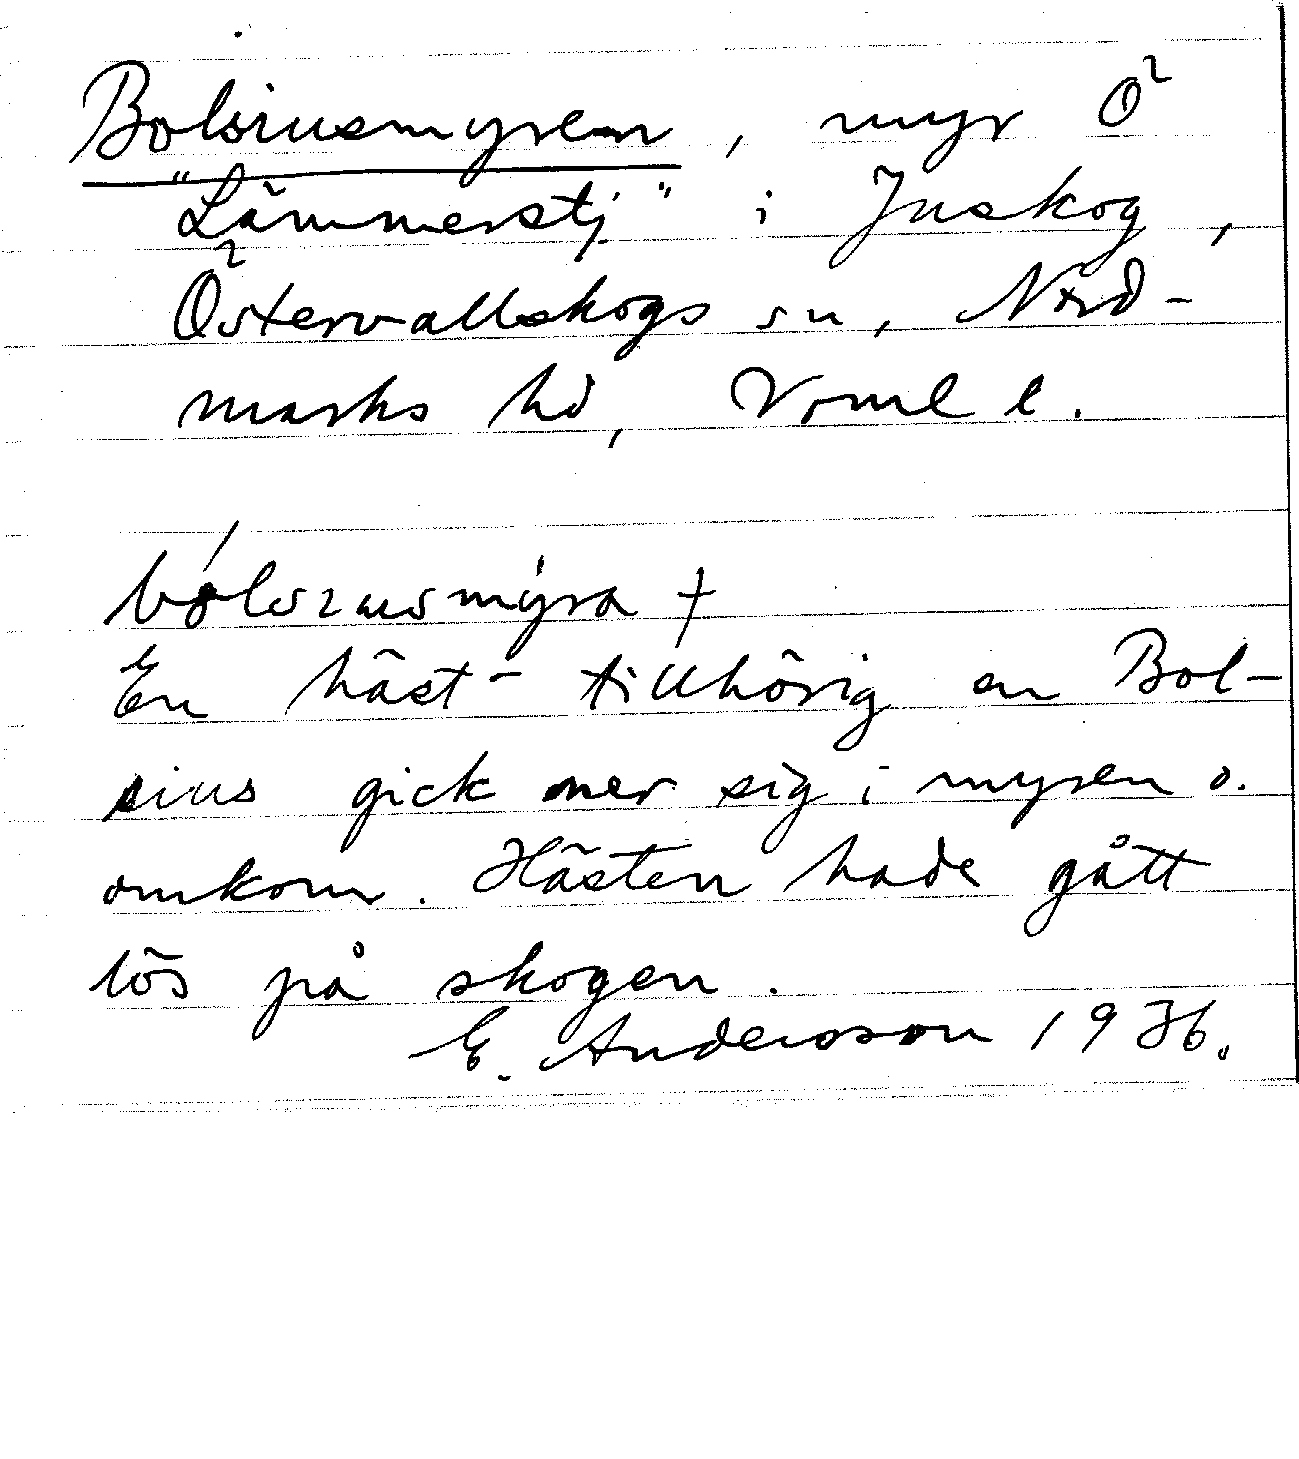 Bolsiusmyren, myr Ö
"Lämmerstj" i Juskog,
Östervallskogs sn, Nord-
marks hd, Vrml l.
bólsiusmýra +
En häst - tillhörig en Bol-
sius gick ner sig i myren o.
omkom. Hästen hade gått
lös på skogen.
E. Andersson 1936.